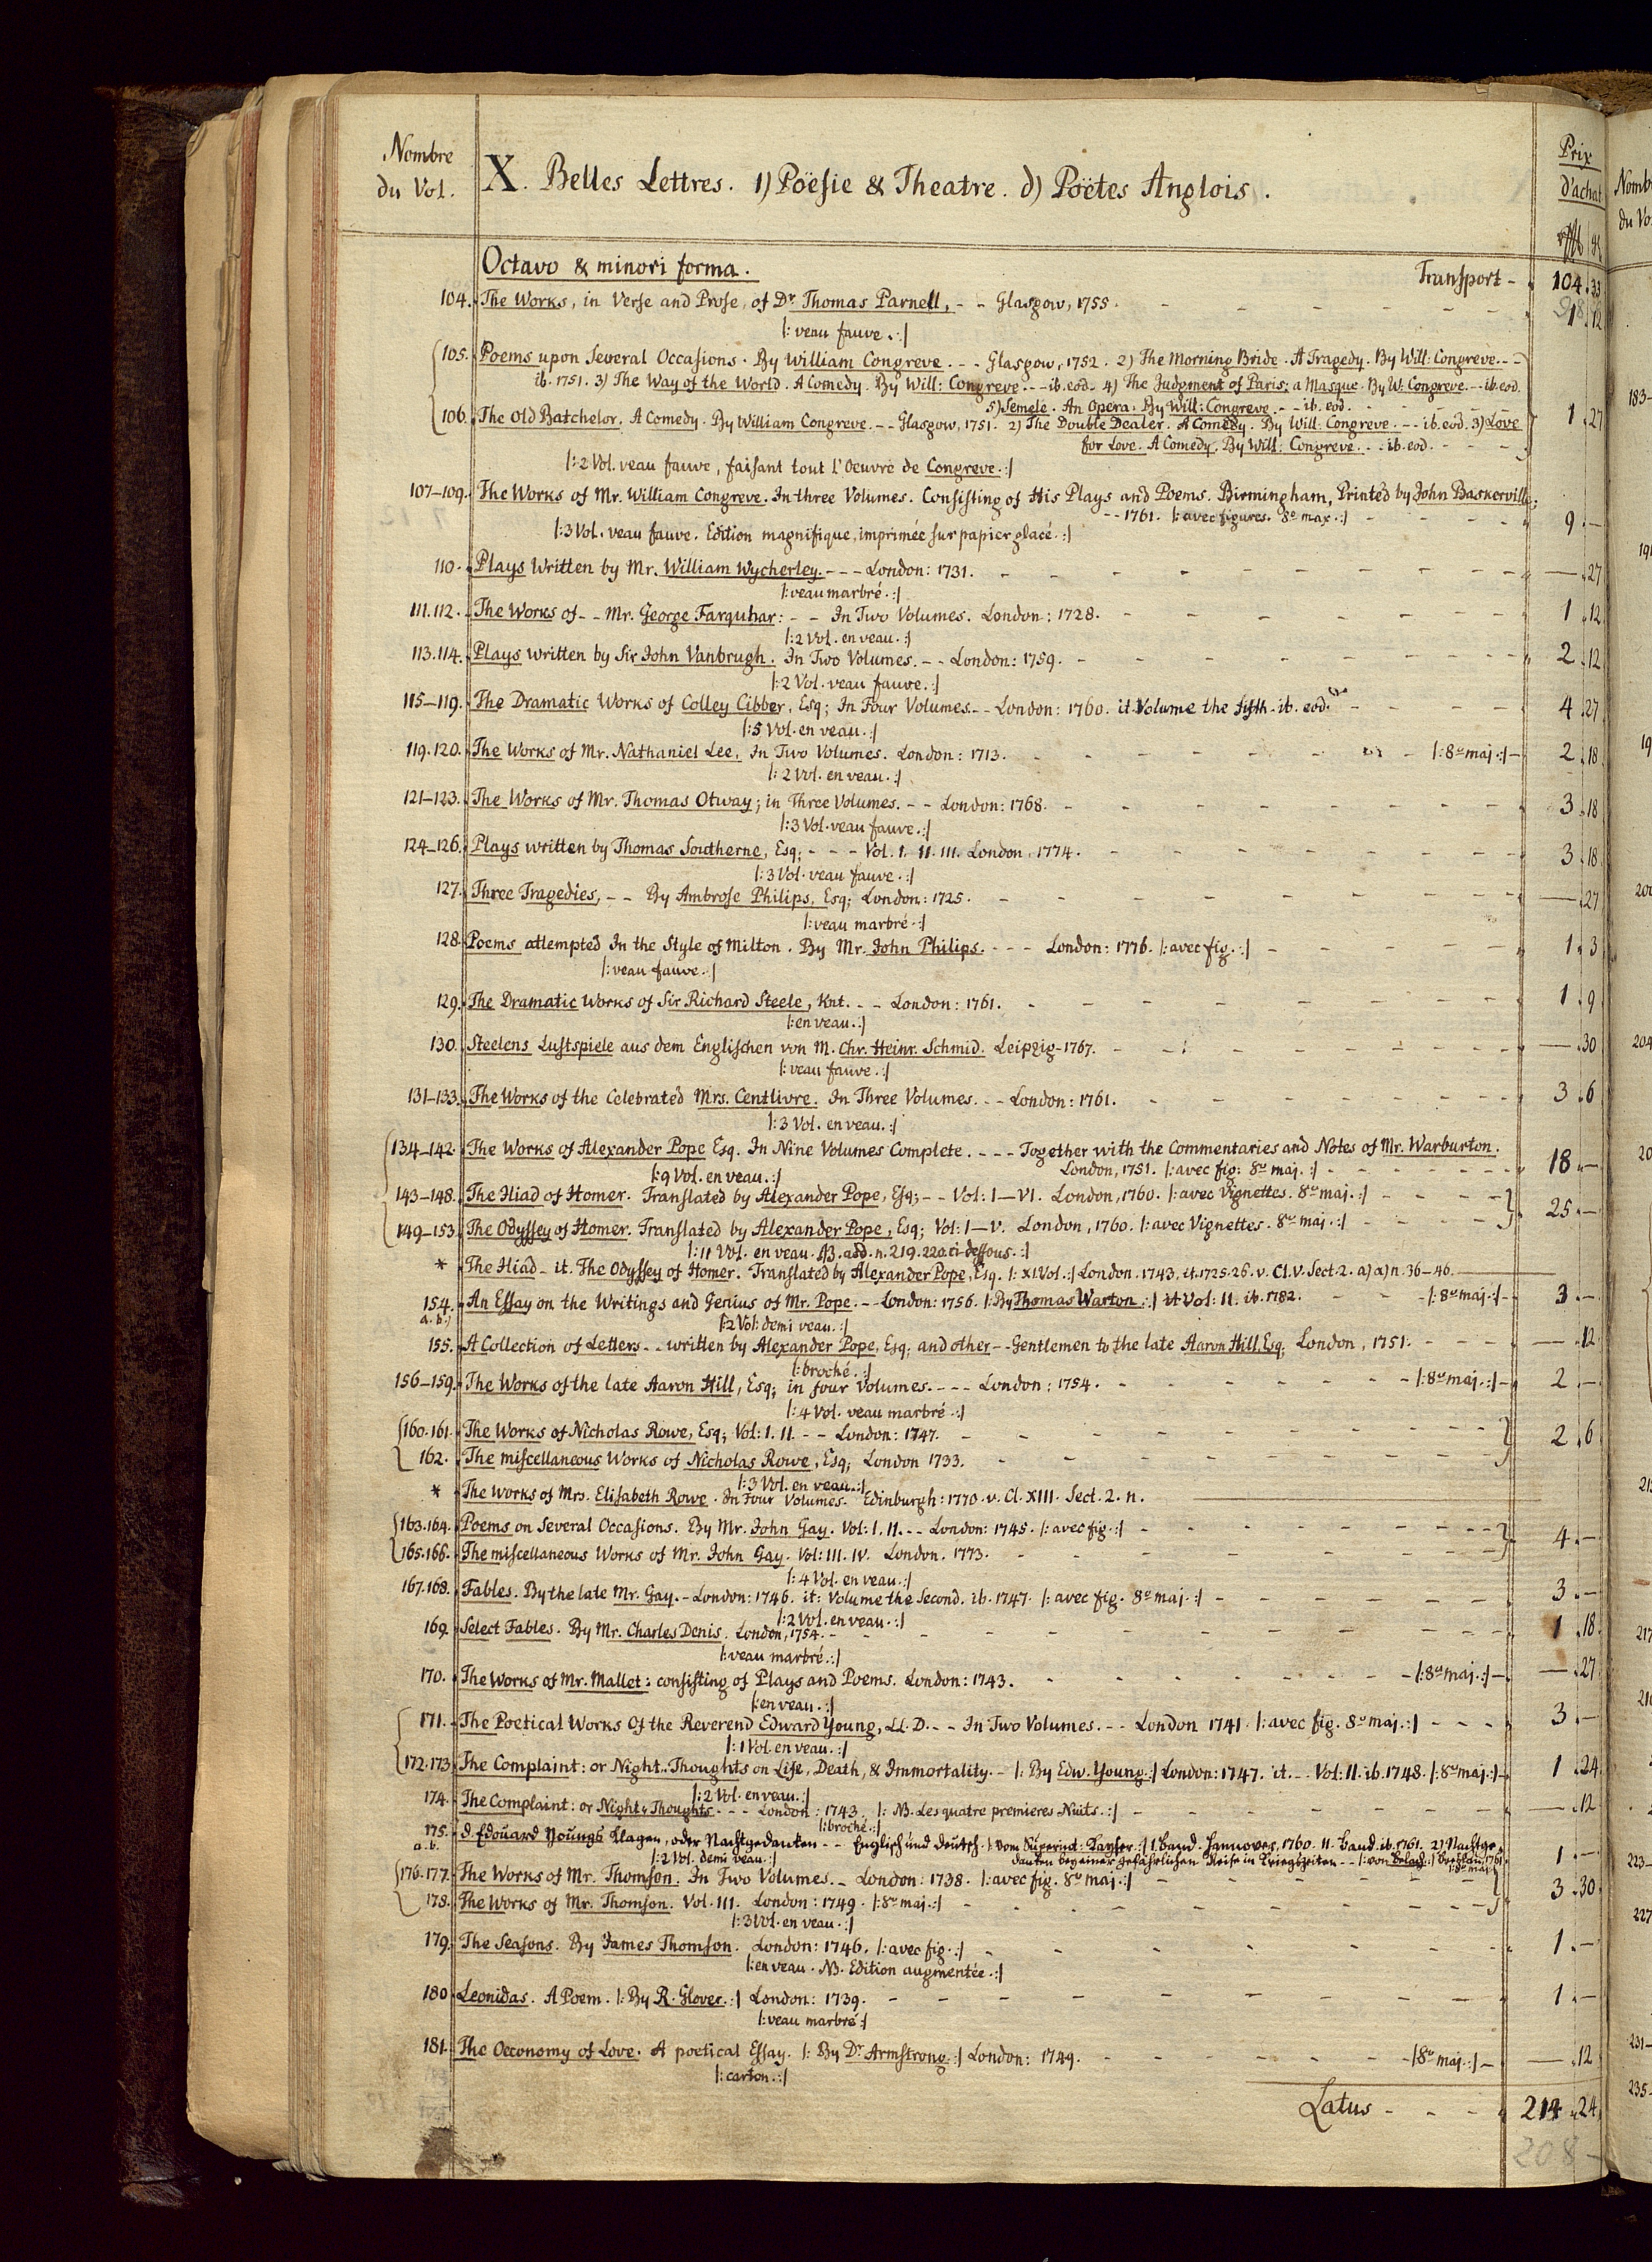 Nombre
du Vol.
X. Belles Lettres. 1) Poësie & Theatre. d) Poëtes Anglois.
Prix
d'achat
Octavo & minori forma.
Transport - 104. 33
104. The Works, in Verse and Prose, of Dr. Thomas Parnell, - - Glasgow, 1755. 1. 12
|: veau fauve. :|
105. Poems upon Several Occasions. By William Congreve. - - Glasgow, 1752. 2) The Morning Bride. A Tragedy. By Will: Congreve. - -
ib. 1751. 3) The Way of the World. A Comedy. By Will: Congreve. - - ib. eod. 4) The Judgment of Paris; a Masque. By W. Congreve. - - ib. eod.
5) Semele. An Opera. By Will: Congreve. - - ib. eod.
106. The Old Batchelor. A Comedy. By William Congreve. - - Glasgow, 1751. 2) The Double Dealer. A Comedy. By Will: Congreve. - - ib. eod. 3) Love 1. 27
for Love. A Comedy. By Will: Congreve. - - ib. eod.
|: 2 Vol. veau fauve, faisant tout l'Oeuvre de Congreve. :|
107-109. The Works of Mr. William Congreve. In three Volumes. Consisting of His Plays and Poems. Birmingham, Printed by John Baskerville;
- - 1761. |: avec figures. 8º maj. :| 9. —
|: 3 Vol. veau fauve. Edition magnifique, imprimée sur papier glacé. :|
110. Plays Written by Mr. William Wycherley. - - - London: 1731. — . 27
|: veau marbré. :|
111. 112. The Works of - - Mr. George Farquhar: - - In Two Volumes. London: 1728. 1. 12
|: 2 Vol. en veau. :|
113. 114. Plays written by Sir John Vanbrugh. In Two Volumes. - - London: 1759. 2. 12
|: 2 Vol. veau fauve. :|
115-119. The Dramatic Works of Colley Cibber, Esq; In Four Volumes. - - London: 1760. it. Volume the fifth - ib. eod. 4. 27
|: 5 Vol. en veau. :|
119. 120. The Works of Mr. Nathaniel Lee, In Two Volumes. London: 1713. |: 8º maj :| 2. 18
|: 2 Vol. en veau. :|
121-123. The Works of Mr. Thomas Otway; in Three Volumes. - - London: 1768. 3. 18
|: 3 Vol. veau fauve. :|
124-126. Plays written by Thomas Southerne, Esq; - - - Vol. I. II. III. London, 1774. 3. 18
|: 3 Vol. veau fauve. :|
127. Three Tragedies, - - By Ambrose Philips, Esq; London: 1725. — . 27
|: veau marbré. :|
128. Poems attempted In the Style of Milton. By Mr. John Philips. - - - London: 1776. |: avec fig. :| 1. 3
|: veau fauve. |
129. The Dramatic Works of Sir Richard Steele, Knt. - - London: 1761. 1. 9
|: en veau. :|
130. Steelens Lustspiele aus dem Englischen von M. Chr. Heinr. Schmid. Leipzig - 1767. — . 30
|: veau fauve. :|
131-133. The Works of the Celebrated Mrs. Centlivre. In Three Volumes. - - London: 1761. 3. 6
|: 3 Vol. en veau. :|
134-142. The Works of Alexander Pope Esq. In Nine Volumes Complete. - - - - Together with the Commentaries and Notes of Mr. Warburton.
London, 1751. |: avec fig: 8º maj. :| 18. —
|: 9 Vol. en veau. :|
143-148. The Iliad of Homer. Translated by Alexander Pope, Esq; - - Vol: I—VI. London, 1760. |: avec Vignettes. 8º maj. :| 25. —
149-153. The Odyssey of Homer. Translated by Alexander Pope, Esq; Vol: I—V. London, 1760. |: avec Vignettes. 8º maj. :|
|: 11 Vol. en veau. NB. add. n. 219. 220 ci-dessous. :|
* The Iliad - it. The Odyssey of Homer. Translated by Alexander Pope, Esq. |: XI. Vol. :| London. 1743. it. 1725. 26. v. Cl. V. Sect. 2. a) a) n. 36-46.
154. An Essay on the Writings and Genius of Mr. Pope. - - London: 1756. |: By Thomas Warton. :| it. Vol: II. ib. 1782. |: 8º maj :| 3. —
a. b.)
|: 2 Vol: demi veau. :|
155. A Collection of Letters - - written by Alexander Pope, Esq; and other - - Gentlemen to the late Aaron Hill, Esq. London, 1751. — . 12
|: broché. :|
156-159. The Works of the late Aaron Hill, Esq; in four Volumes. - - - London: 1754. |: 8º maj. :| 2. —
|: 4 Vol. veau marbré. :|
160. 161. The Works of Nicholas Rowe, Esq; Vol: I. II. - - London: 1747. 2. 6
162. The miscellaneous Works of Nicholas Rowe, Esq; London 1733.
|: 3 Vol. en veau. :|
* The Works of Mrs. Elisabeth Rowe. In Four Volumes. Edinburgh: 1770. v. Cl. XIII. Sect. 2. n.
163. 164. Poems on Several Occasions. By Mr. John Gay. Vol: I. II. - - London: 1745. |: avec fig. :| 4. —
165. 166. The miscellaneous Works of Mr. John Gay. Vol: III. IV. London. 1773.
|: 4 Vol. en veau. :|
167. 168. Fables. By the late Mr. Gay. - London: 1746. it: Volume the Second. ib. 1747. |: avec fig. 8º maj. :| 3. —
|: 2 Vol. en veau. :|
169. Select Fables. By Mr. Charles Denis. London, 1754. 1. 18
|: veau marbré. :|
170. The Works of Mr. Mallet: consisting of Plays and Poems. London: 1743. |: 8º maj. :| — . 27
|: en veau. :|
171. The Poetical Works Of the Reverend Edward Young, LL. D. - - In Two Volumes. - - London 1741. |: avec fig. 8º maj. :| 3. —
|: 1 Vol. en veau. :|
172. 173. The Complaint: or Night-Thoughts on Life, Death, & Immortality. - |: By Edw. Young. :| London: 1747. it. - - Vol: II. ib. 1748. |: 8º maj. :| 1. 24
|: 2 Vol. en veau. :|
174. The Complaint: or Night-Thoughts. - - - London: 1743. |: NB. Les quatre premieres Nuits. :| — . 12
|: broché. :|
175. D. Edouard Youngs Klagen, oder Nachtgedanken - - Englisch und deutsch. |: vom Superint: Kayser. :| I. Band. Hannover, 1760. II. Band. ib. 1761. 2) Nachtge-
a. b.
danken bey einer gefährlichen Reise in Kriegszeiten - - |: von Belach. :| Breslau, 1761. 1. —
|: 8º maj. :|
|: 2 Vol. demi veau. :|
176. 177. The Works of Mr. Thomson. In Two Volumes. - London: 1738. |: avec fig. 8º maj. :| 3. 30
178. The Works of Mr. Thomson. Vol. III. London: 1749. |: 8º maj. :|
|: 3 Vol. en veau. :|
179. The Seasons. By James Thomson. London: 1746. |: avec fig. :| 1. —
|: en veau. NB. Edition augmentée. :|
180. Leonidas. A Poem. |: By R. Glover. :| London: 1739. 1. —
|: veau marbré :|
181. The Oeconomy of Love. A poetical Essay. |: By Dr. Armstrong. :| London: 1749. |: 8º maj. :| — . 12
|: carton. :|
Latus - 214. 24
208 -